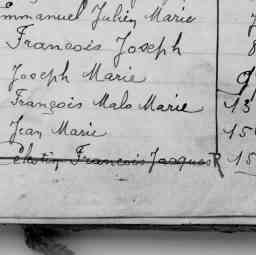 Emmanuel Julien Marie
François Joseph 8
Joseph Marie
François Malo Marie 13
Jean Marie 15
François Jacques 15